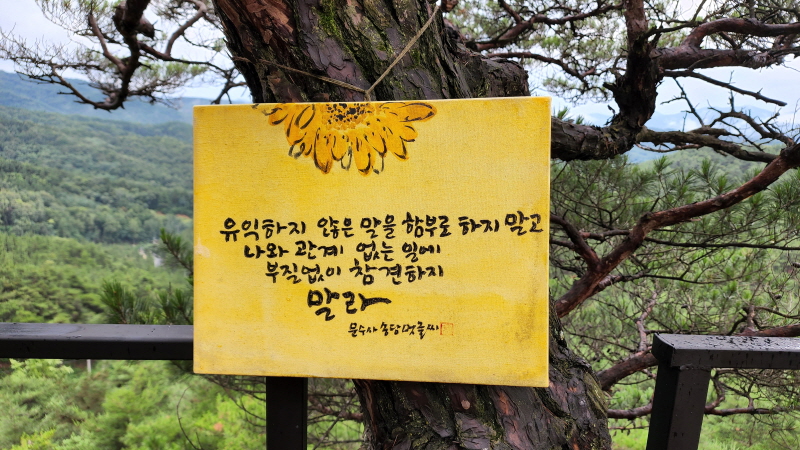 유익하지 않은 말을 함부로 하지 말고
나와 관계 없는 일에
부질없이 참견하지
말라
문수사 송당 멋글씨